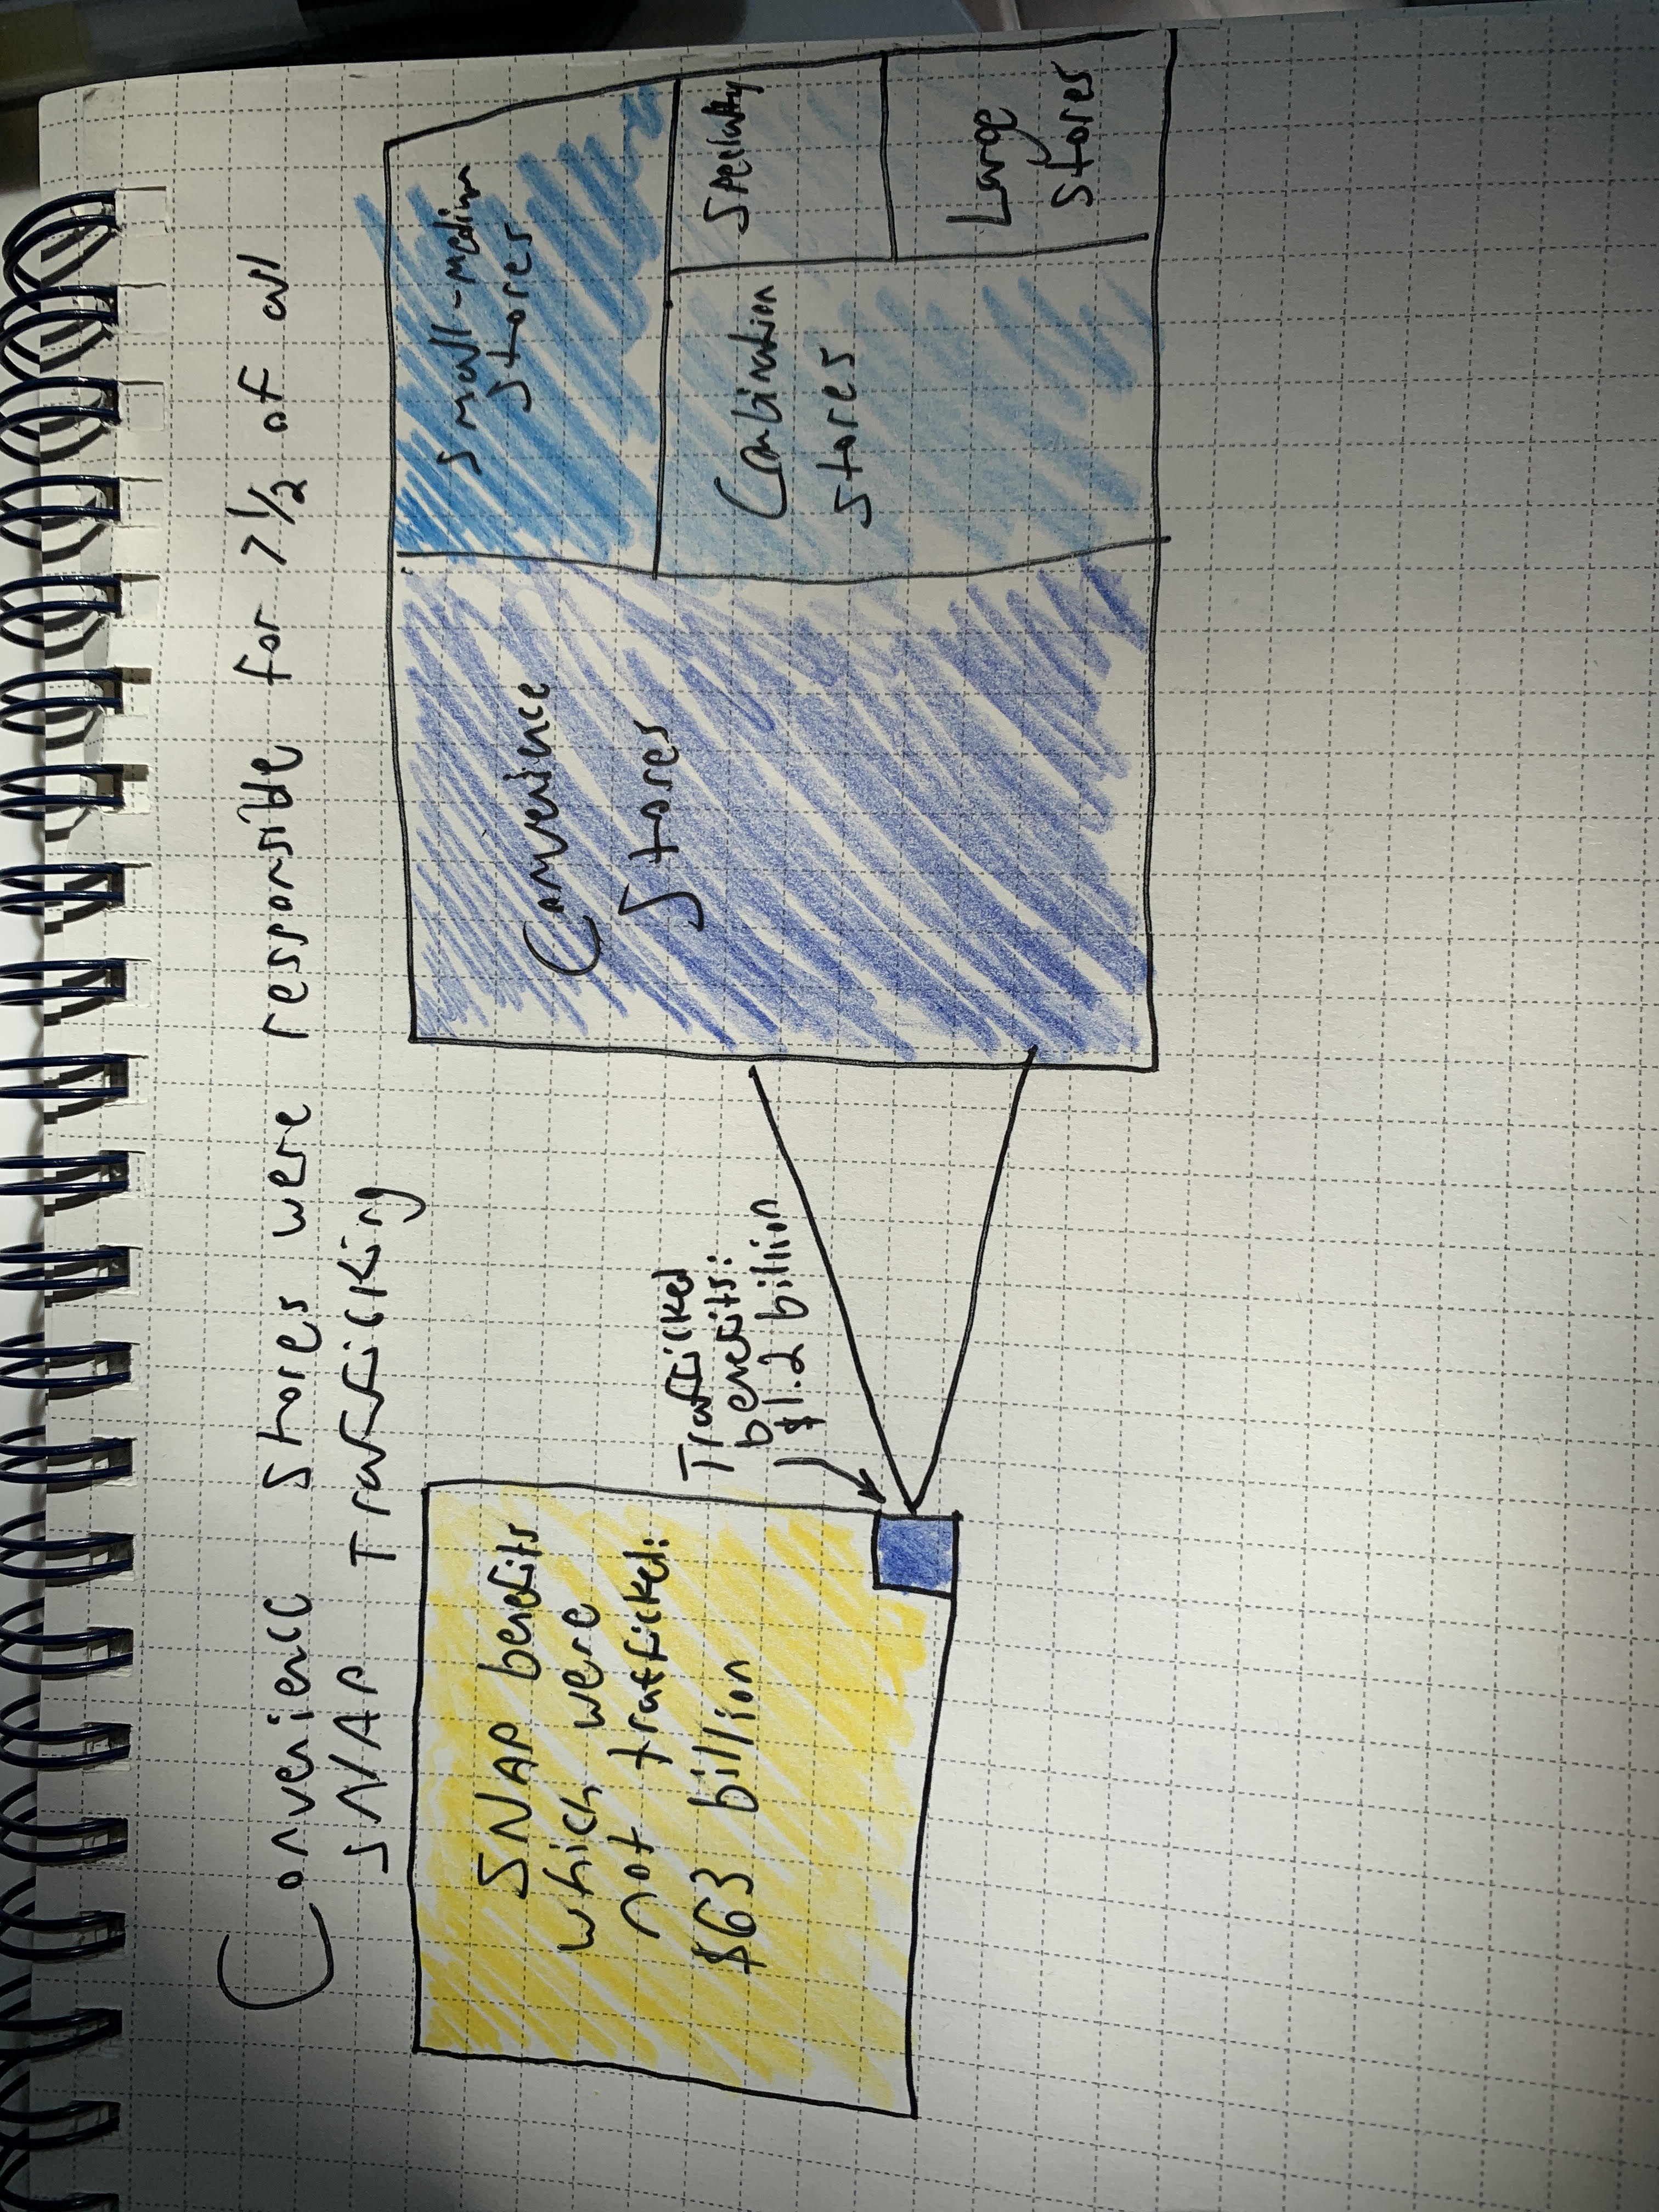 Convenience stores were responsible for >1/2 of all
SNAP Trafficking
SNAP benefits
which were
not trafficked:
$63 billion
Trafficked
benefits:
$1.2 billion
Convenience
Stores
Small-medium
Stores
Combination
stores
Specialty
Large
stores